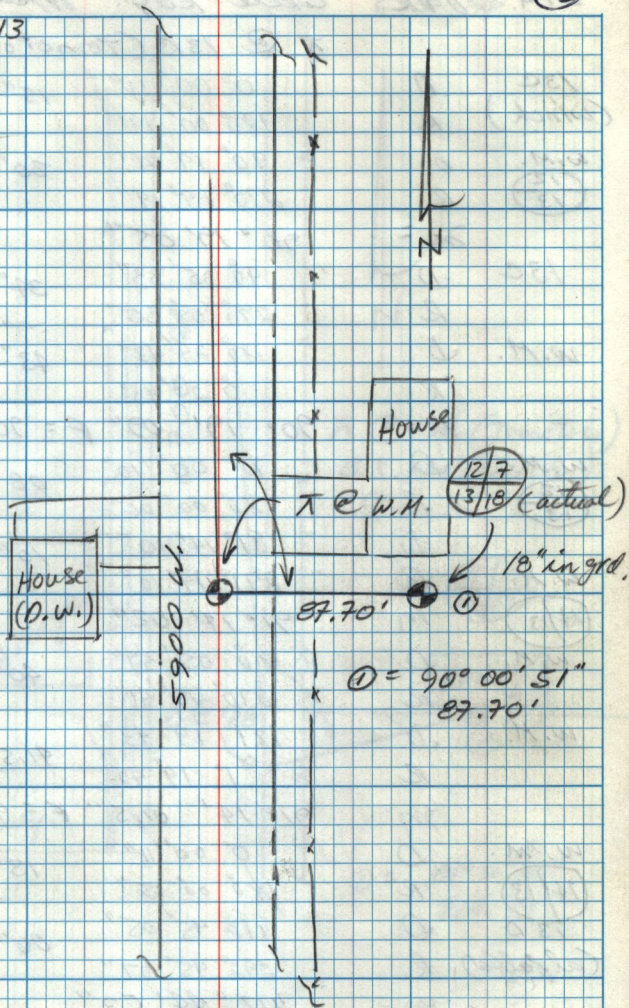 13
N
House
12 7
13 18
(actual)
⊼ @ W.M.
18" in grd.
House
(D.W.)
5900 W.
87.70'
①
① = 90° 00' 51"
87.70'